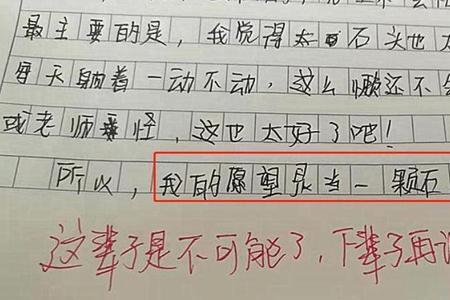 最主要的是，我觉得太石头也
每天躺着一动不动，这么懒还不
或老师责怪，这也太好了吧！
所以，我的愿望是当一颗石
这辈子是不可能了，下辈子再